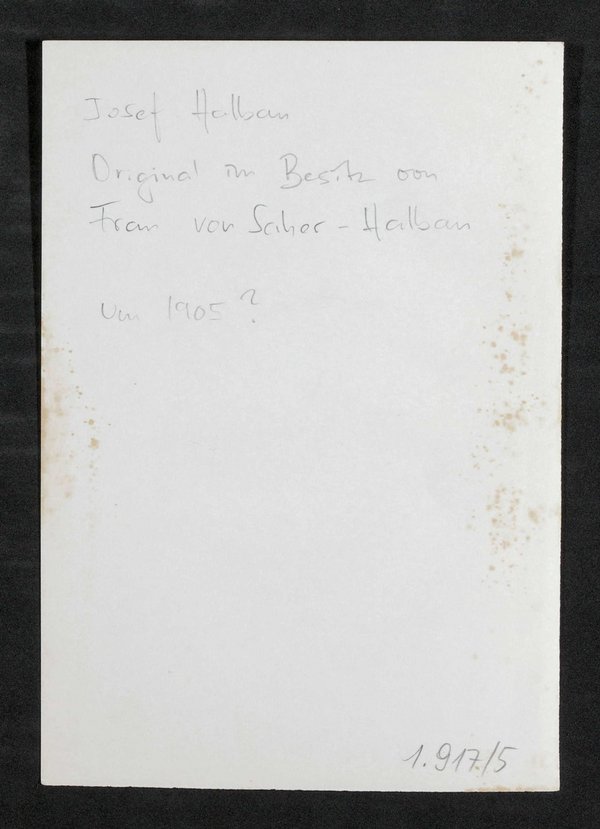 Josef Halban
Original im Besitz von
Frau von Saher-Halban
um 1905?
1.917/5